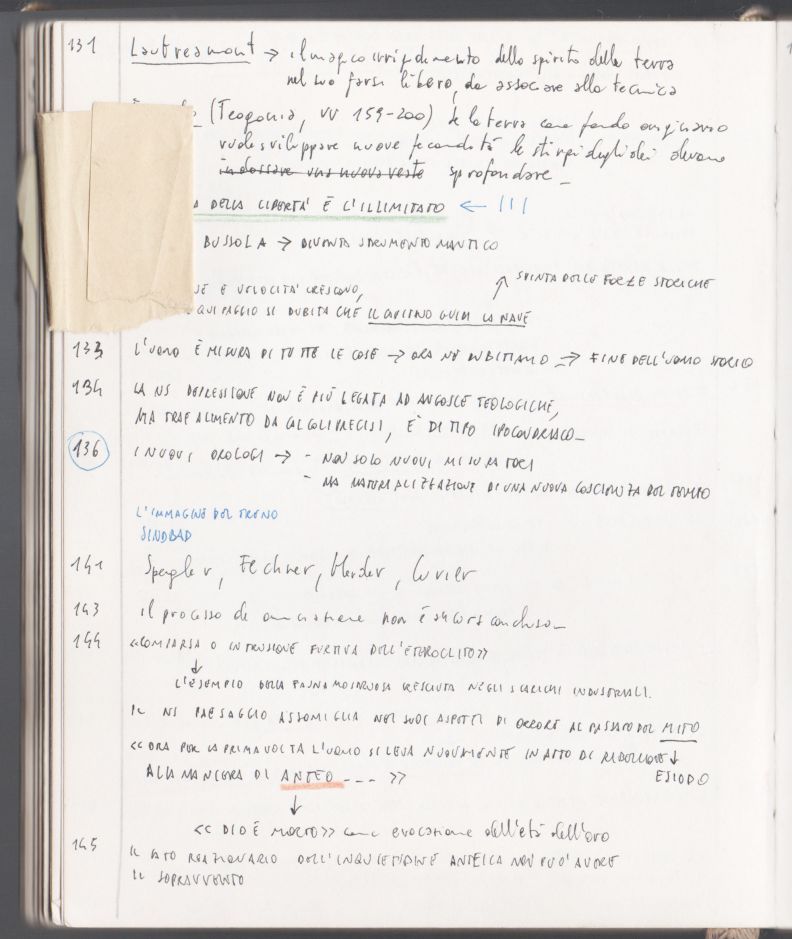 131 Lautreamont → il magico irrigidimento dello spirito della terra
nel suo farsi libero, da associare alla tecnica
(Teogonia, vv 159-200) Se la terra come fondo originario
vuole sviluppare nuove fecondità le stirpi degli dei devono
indossare una nuova veste sprofondare_
DELLA LIBERTA' È L'ILLIMITATO ← |||
BUSSOLA → DIVENTA STRUMENTO MANTICO
SPINTA DELLE FORZE STORICHE
E VELOCITA' CRESCONO,
EQUIPAGGIO SI DUBITA CHE IL DESTINO GUIDI LA NAVE
133 L'UOMO È MISURA DI TUTTE LE COSE → ORA NE DUBITIAMO → FINE DELL'UOMO STORICO
134 LA NS DEPRESSIONE NON È PIÙ LEGATA AD ANGOSCE TEOLOGICHE,
MA TRAE ALIMENTO DA CALCOLI PRECISI, E' DI TIPO IPOCONDRIACO_
136 I NUOVI OROLOGI → - NON SOLO NUOVI MISURATORI
- MA MATERIALIZZAZIONE DI UNA NUOVA COSCIENZA DEL TEMPO
L'IMMAGINE DEL TRENO
SINDBAD
141 Spengler, Fechner, Herder, Cuvier
143 il processo di non è ancora concluso_
144 «COMPARSA O INTRUSIONE FURTIVA DELL'ETEROCLITO»
↓
L'ESEMPIO DELLA FAUNA MOSTRUOSA CRESCIUTA NEGLI SCARICHI INDUSTRIALI.
IL NS PAESAGGIO ASSOMIGLIA NEI SUOI ASPETTI DI ORRORE AL PASSATO DEL MITO
«ORA PER LA PRIMA VOLTA L'UOMO SI LEVA NUOVAMENTE IN ATTO DI RIBELLIONE ↓
ALLA MANIERA DI ANTEO ---- » ESIODO
↓
«DIO È MORTO» come evocazione dell'età dell'oro
145 IL LATO REAZIONARIO DELL'INQUIETUDINE ANTEICA NON PUO' AVERE
IL SOPRAVVENTO